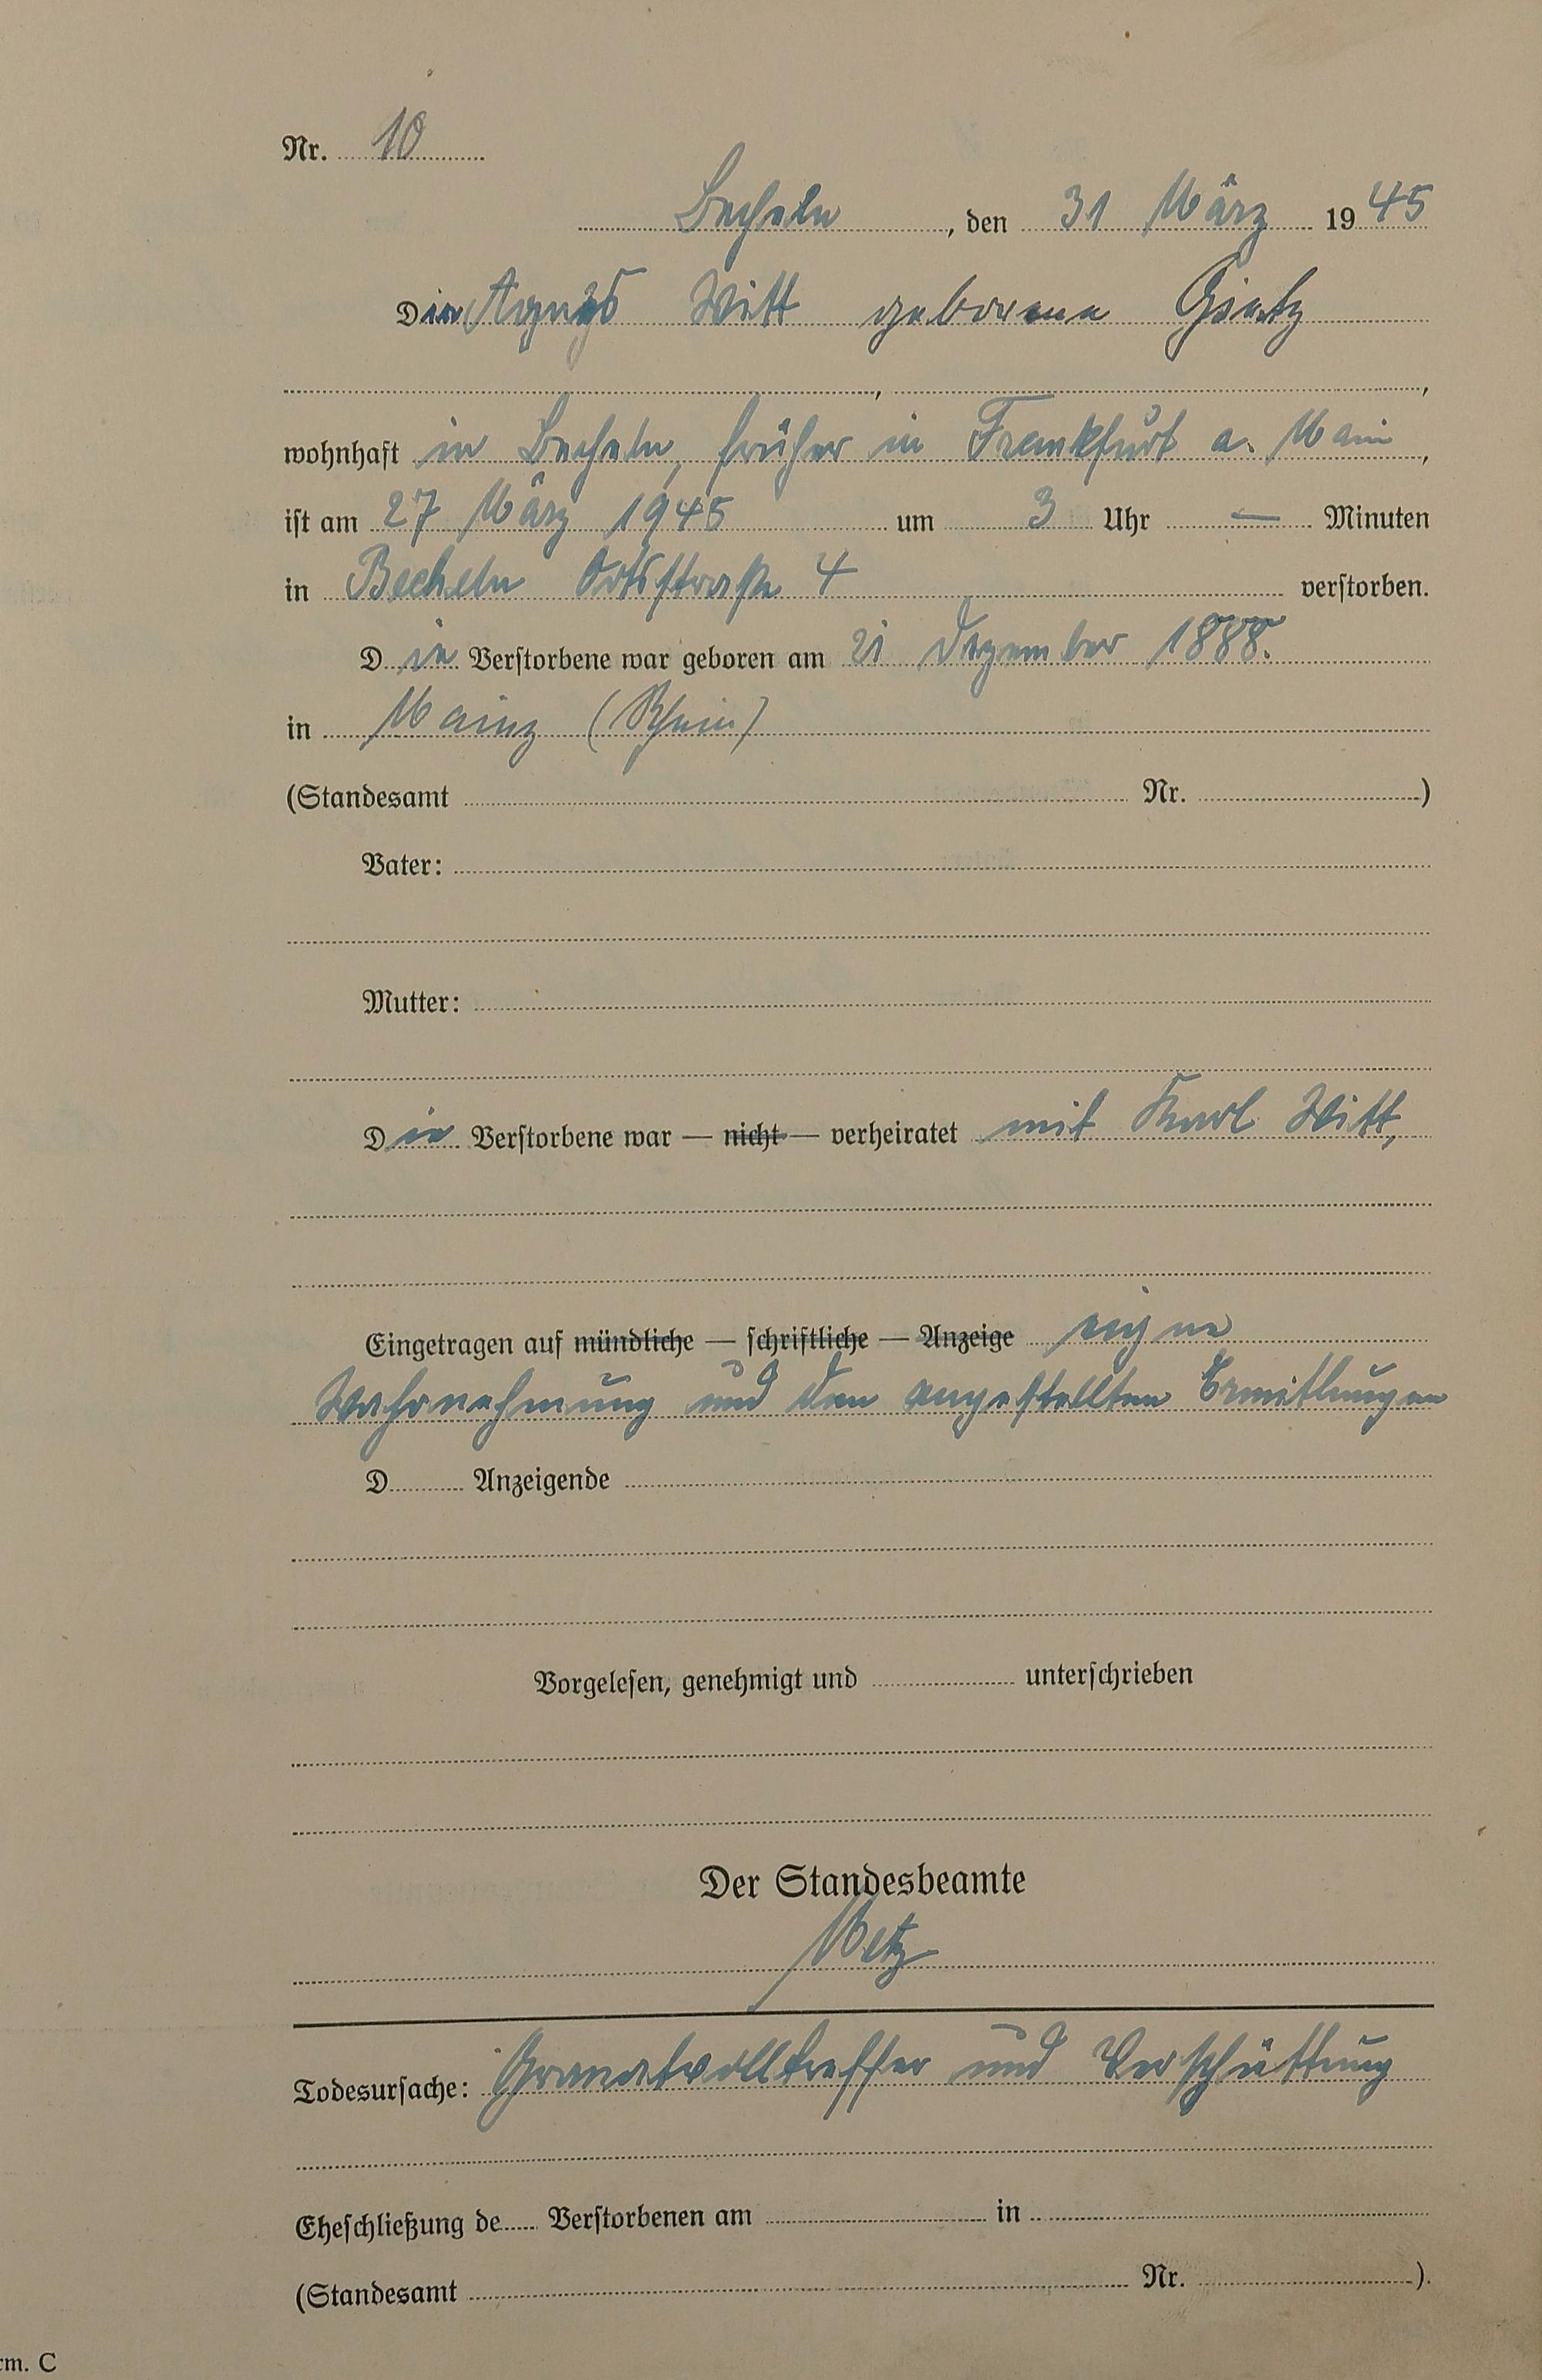 Nr. 10
Becheln, den 31 März 1945
Die Agnes Witt geborene Gietz
, ,
wohnhaft in Becheln, früher in Frankfurt a. Main,
ist am 27 März 1945 um 3 Uhr — Minuten
in Becheln Ortsstraße 4 verstorben.
Die Verstorbene war geboren am 21 Dezember 1888.
in Mainz (Rhein)
(Standesamt Nr. )
Vater:
Mutter:
Die Verstorbene war — nicht — verheiratet mit Karl Witt,
Eingetragen auf mündliche — schriftliche — Anzeige eigne
Wahrnehmung und den angestellten Ermitlungen
D Anzeigende
Vorgelesen, genehmigt und unterschrieben
Der Standesbeamte
Metz
Todesursache: Granatvolltreffer und Verschüttung
Eheschließung de Verstorbenen am in
(Standesamt Nr. ).
rm. C